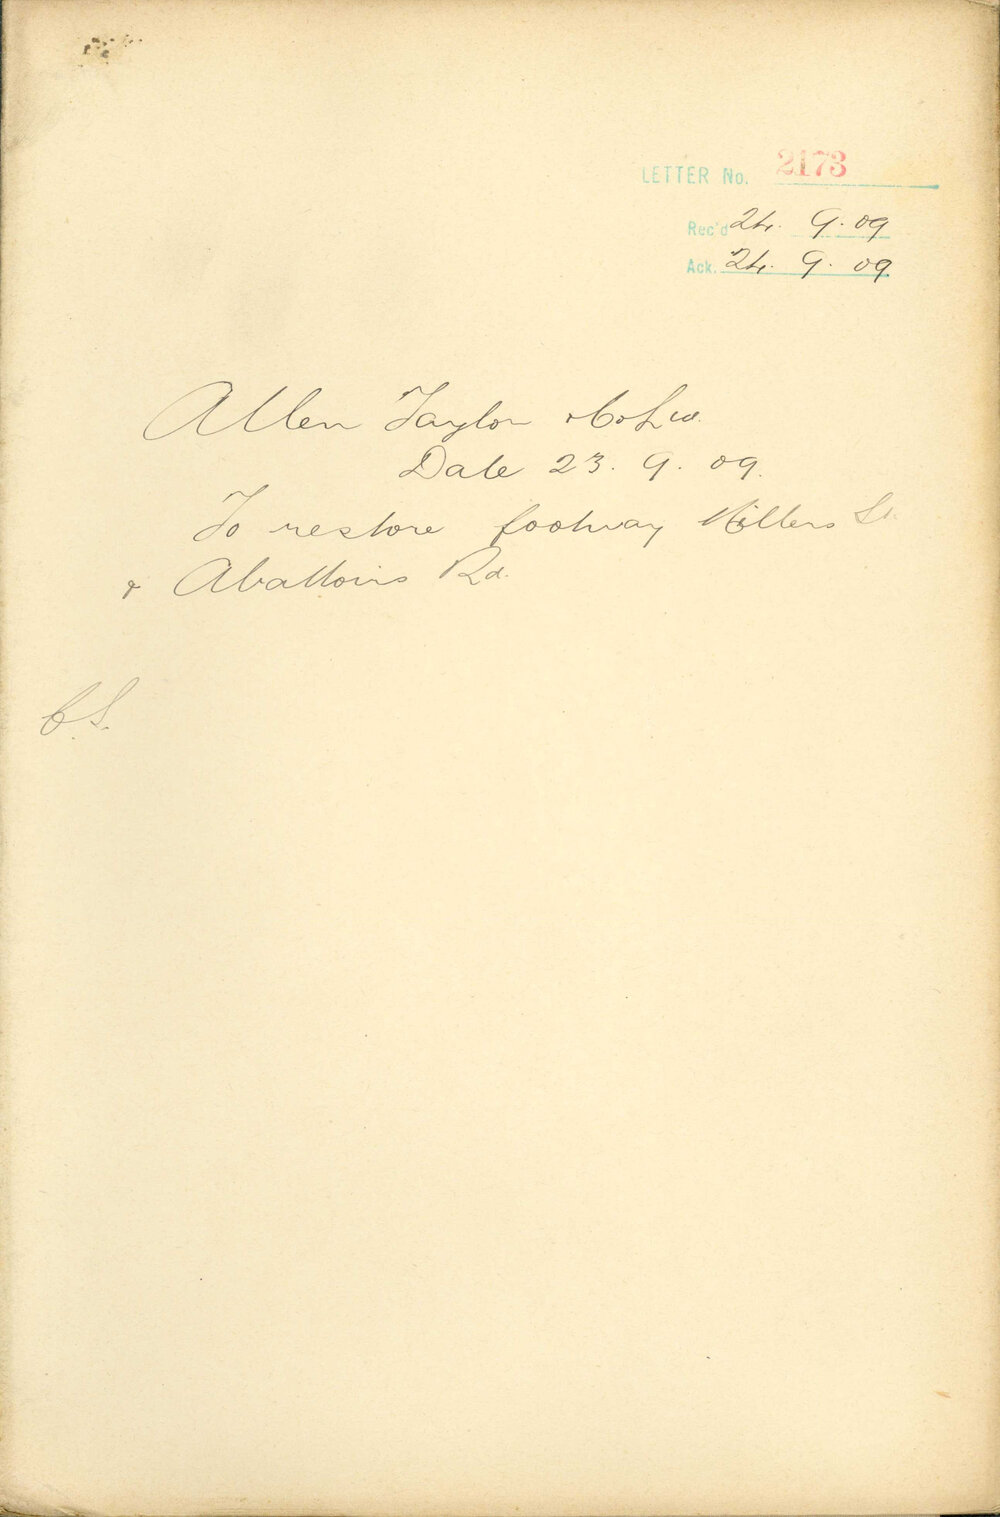 LETTER No. 2173
Rec'd 24. 9. 09
Ack. 24. 9. 09
Allen Taylor & Co Ld
Date 23. 9. 09.
To restore footway Millers St
& Abattoirs Rd.
C S.